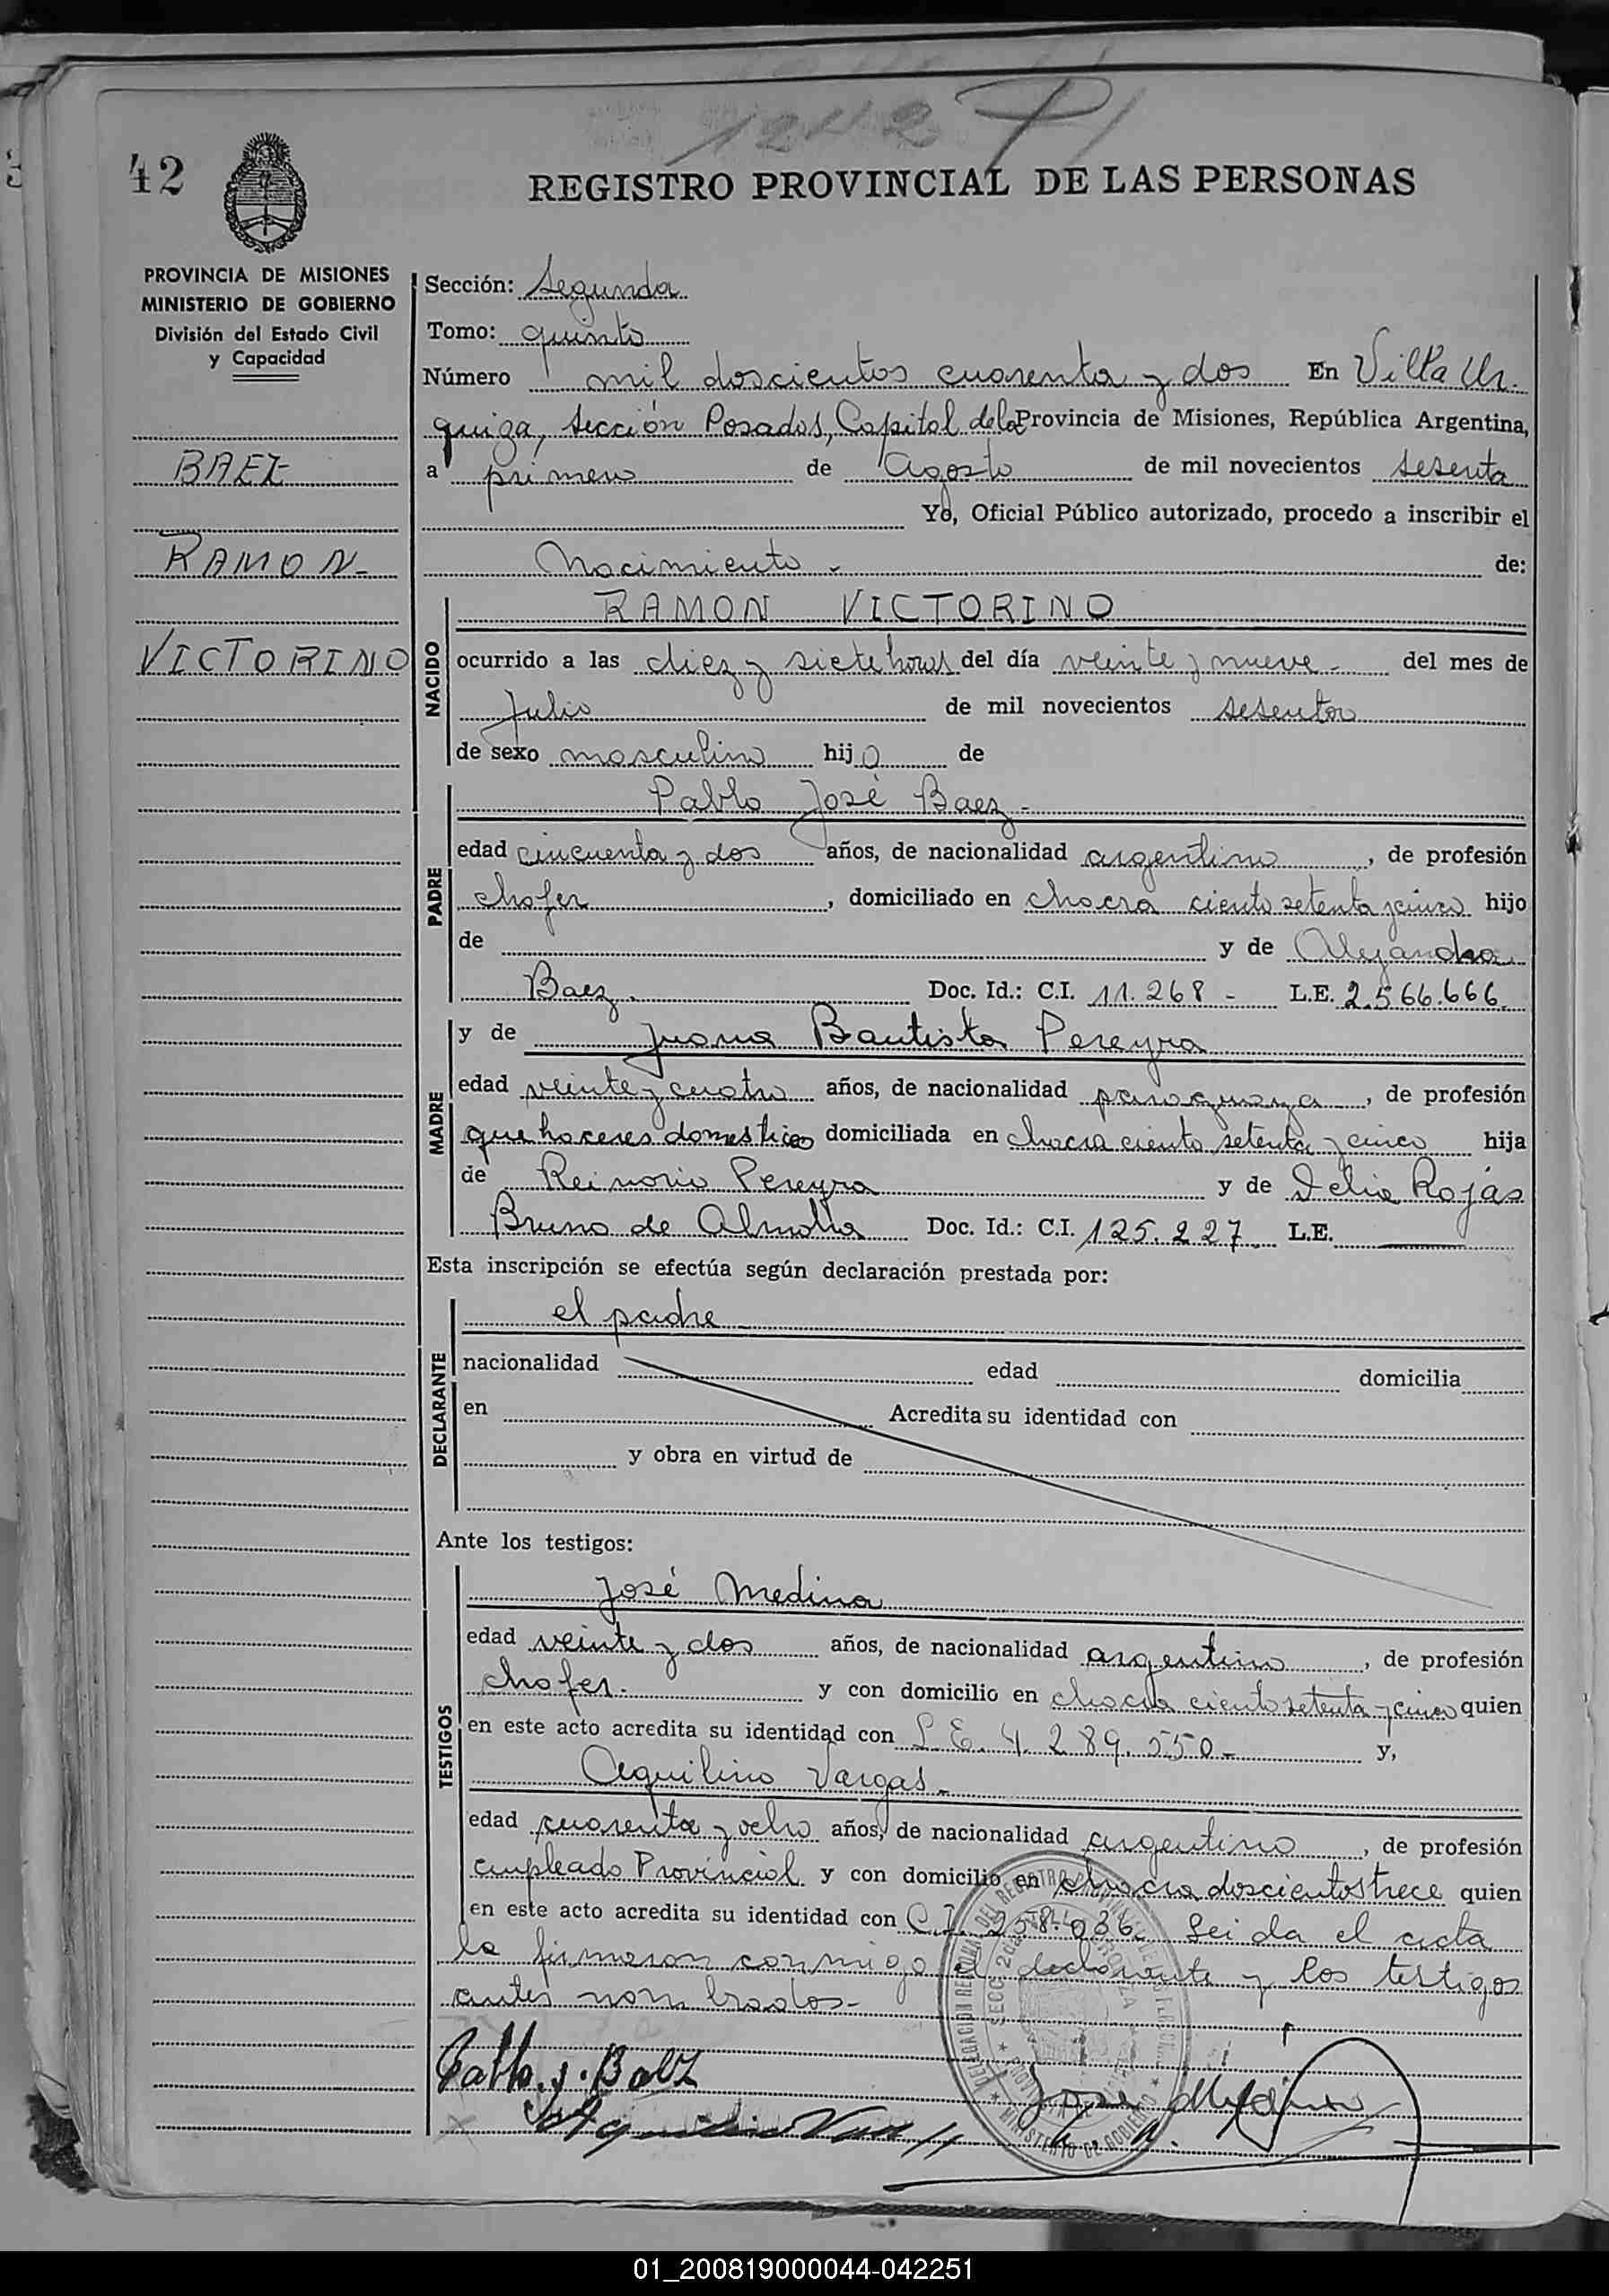 1242
42
REGISTRO PROVINCIAL DE LAS PERSONAS
PROVINCIA DE MISIONES
MINISTERIO DE GOBIERNO
División del Estado Civil
y Capacidad
BAEZ
RAMON
VICTORINO
Sección: Segunda
Tomo: quinto
Número mil doscientos cuarenta y dos En Villa Ur-
quiza, Sección Posadas, Capital de la Provincia de Misiones, República Argentina,
a primero de Agosto de mil novecientos sesenta
Yo, Oficial Público autorizado, procedo a inscribir el
Nacimiento - de:
NACIDO
RAMON VICTORINO
ocurrido a las diez y siete horas del día veinte y nueve - del mes de
Julio de mil novecientos sesenta
de sexo masculino hijo de
PADRE
Pablo José Baez -
edad cincuenta y dos años, de nacionalidad argentino, de profesión
chofer, domiciliado en chacra ciento setenta y cinco hijo
de y de Alejandra
Baez. Doc. Id.: C.I. 11.268 - L.E. 2.566.666
MADRE
y de Juana Bautista Pereyra
edad veinte y cuatro años, de nacionalidad paraguaya, de profesión
quehaceres domesticos domiciliada en chacra ciento setenta y cinco hija
de Pereyra y de Delia Rojas
Bruno de Doc. Id.: C.I. 125.227 L.E. —
Esta inscripción se efectúa según declaración prestada por:
DECLARANTE
el padre
nacionalidad edad domicilia
en Acredita su identidad con
y obra en virtud de
Ante los testigos:
TESTIGOS
José Medina
edad veinte y dos años, de nacionalidad argentino, de profesión
chofer. y con domicilio en chacra ciento setenta y cinco quien
en este acto acredita su identidad con L.E. 4.289.550- y,
Aquilino Vargas -
edad cuarenta y ocho años, de nacionalidad argentino, de profesión
empleado Provincial y con domicilio en chacra doscientos trece quien
en este acto acredita su identidad con C.I. 258.036. Leida el acta
la firmaron conmigo el declarante y los testigos
antes nombrados-
Pablo J. Baez
Jose Medina
Aquilino
SECC. 2da
MINISTERIO DE GOBIERNO
01_200819000044-042251